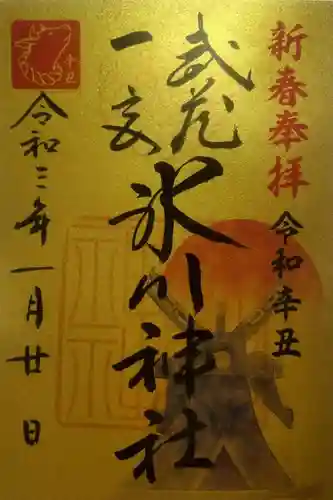 新春奉拝
令和辛丑
武蔵
一宮
氷川神社
令和三年一月廿日